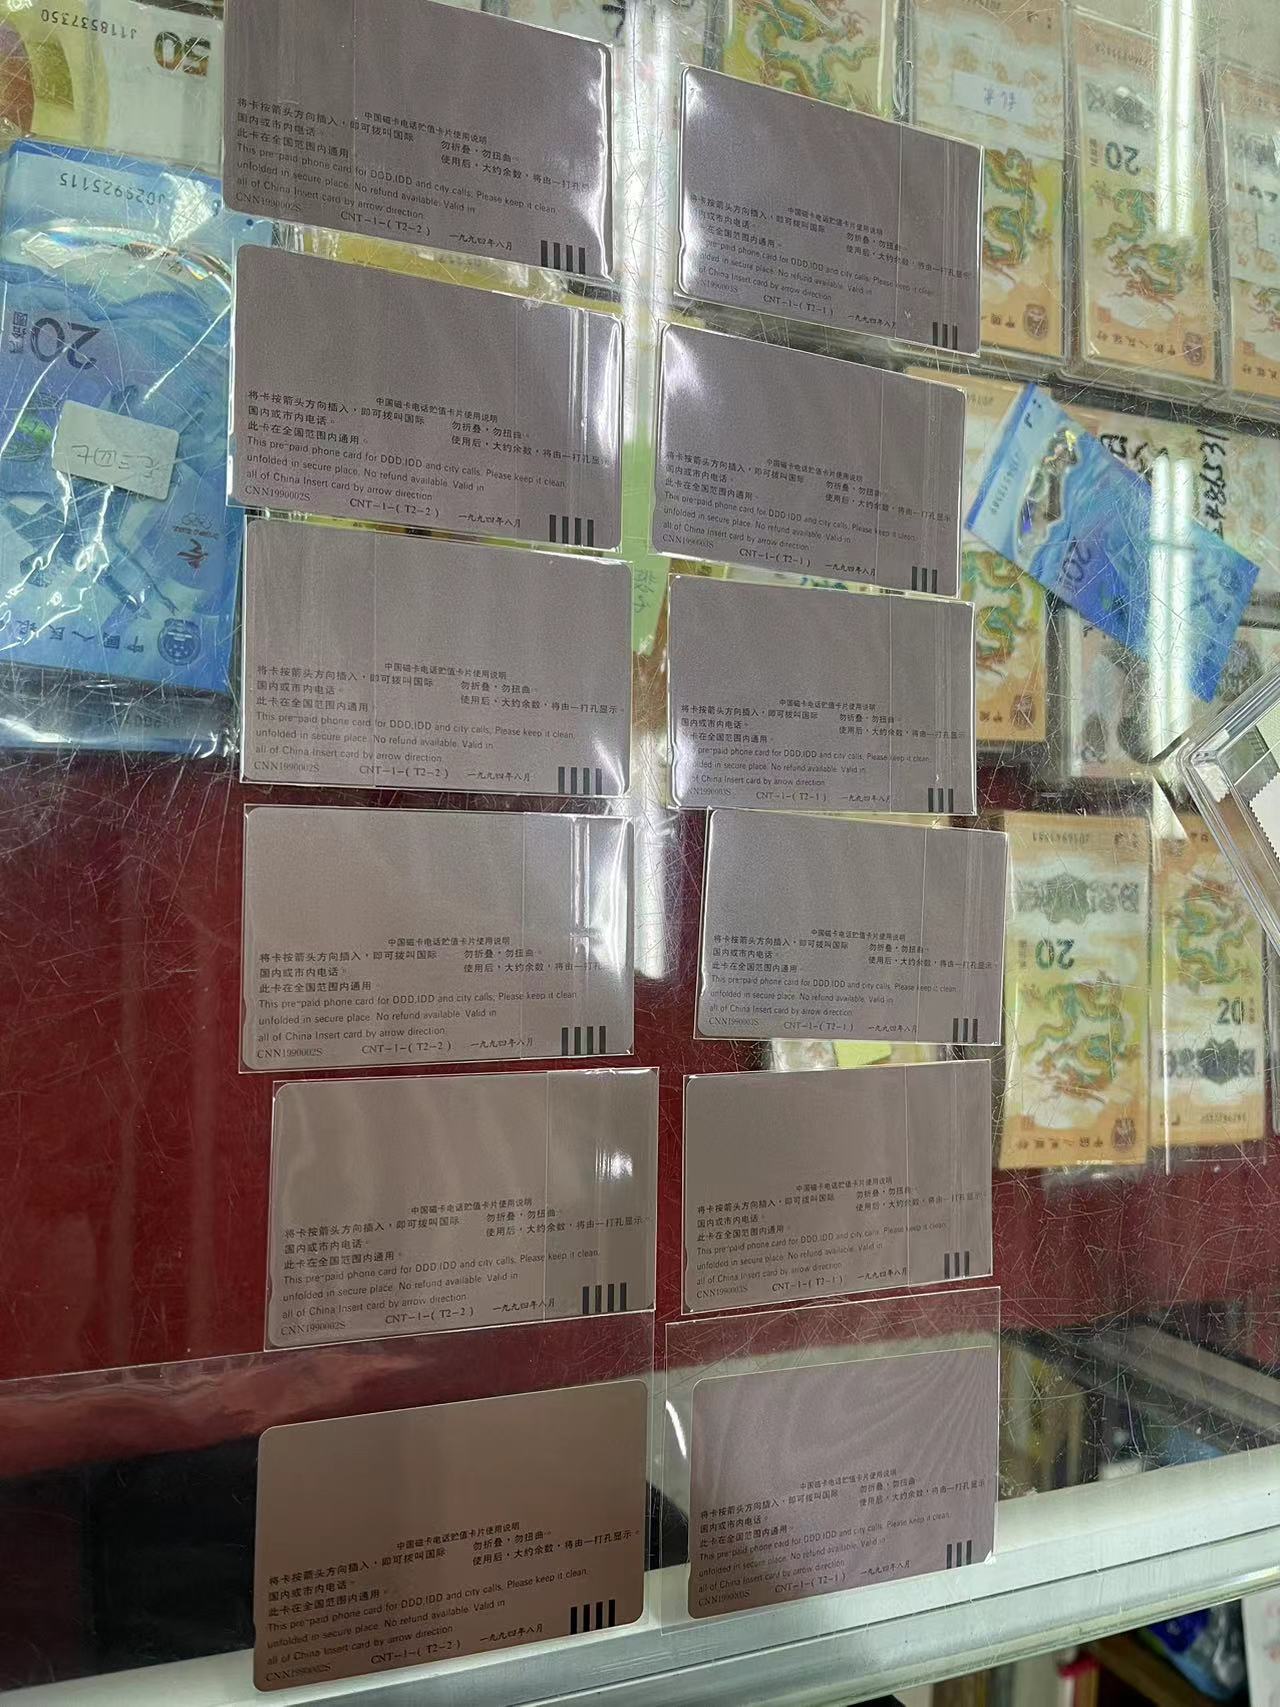 J118537350
50
J029925115
20
中国磁卡电话贮值卡片使用说明
将卡按箭头方向插入，即可拨叫国际 勿折叠，勿扭曲。
国内或市内电话。 使用后，大约余数，将由一打孔
此卡在全国范围内通用。
This pre-paid phone card for DDD,IDD and city calls. Please keep it clean,
unfolded in secure place. No refund available. Valid in
all of China Insert card by arrow direction.
CNN1990002S CNT-1-( T2-2 ) 一九九四年八月
中国磁卡电话贮值卡片使用说明
将卡按箭头方向插入，即可拨叫国际 勿折叠，勿扭曲。
国内或市内电话。 使用后，大约余数，将由一打孔显示
此卡在全国范围内通用。
This pre-paid phone card for DDD,IDD and city calls. Please keep it clean,
unfolded in secure place. No refund available. Valid in
all of China Insert card by arrow direction.
CNN1990002S CNT-1-( T2-2 ) 一九九四年八月
中国磁卡电话贮值卡片使用说明
将卡按箭头方向插入，即可拨叫国际 勿折叠，勿扭曲。
国内或市内电话。 使用后，大约余数，将由一打孔显示。
此卡在全国范围内通用。
This pre-paid phone card for DDD,IDD and city calls. Please keep it clean,
unfolded in secure place. No refund available. Valid in
all of China Insert card by arrow direction.
CNN1990002S CNT-1-( T2-2 ) 一九九四年八月
中国磁卡电话贮值卡片使用说明
将卡按箭头方向插入，即可拨叫国际 勿折叠，勿扭曲。
国内或市内电话。 使用后，大约余数，将由一打孔
此卡在全国范围内通用。
This pre-paid phone card for DDD,IDD and city calls. Please keep it clean,
unfolded in secure place. No refund available. Valid in
all of China Insert card by arrow direction.
CNN1990002S CNT-1-( T2-2 ) 一九九四年八月
中国磁卡电话贮值卡片使用说明
将卡按箭头方向插入，即可拨叫国际 勿折叠，勿扭曲。
国内或市内电话。 使用后，大约余数，将由一打孔显示。
此卡在全国范围内通用。
This pre-paid phone card for DDD,IDD and city calls. Please keep it clean,
unfolded in secure place. No refund available. Valid in
all of China Insert card by arrow direction.
CNN1990002S CNT-1-( T2-2 ) 一九九四年八月
中国磁卡电话贮值卡片使用说明
将卡按箭头方向插入，即可拨叫国际 勿折叠，勿扭曲。
国内或市内电话。 使用后，大约余数，将由一打孔显示。
此卡在全国范围内通用。
This pre-paid phone card for DDD,IDD and city calls. Please keep it clean,
unfolded in secure place. No refund available. Valid in
all of China Insert card by arrow direction.
CNN1990002S CNT-1-( T2-2 ) 一九九四年八月
中国磁卡电话贮值卡片使用说明
将卡按箭头方向插入，即可拨叫国际 勿折叠，勿扭曲。
国内或市内电话。 使用后，大约余数，将由一打孔显示
此卡在全国范围内通用。
This pre-paid phone card for DDD,IDD and city calls. Please keep it clean,
unfolded in secure place. No refund available. Valid in
all of China Insert card by arrow direction.
CNN1990003S CNT-1-( T2-1 ) 一九九四年八月
中国磁卡电话贮值卡片使用说明
将卡按箭头方向插入，即可拨叫国际 勿折叠，勿扭曲。
国内或市内电话。 使用后，大约余数，将由一打孔显示
此卡在全国范围内通用。
This pre-paid phone card for DDD,IDD and city calls. Please keep it clean,
unfolded in secure place. No refund available. Valid in
all of China Insert card by arrow direction.
CNN1990003S CNT-1-( T2-1 ) 一九九四年八月
中国磁卡电话贮值卡片使用说明
将卡按箭头方向插入，即可拨叫国际 勿折叠，勿扭曲。
国内或市内电话。 使用后，大约余数，将由一打孔显示
卡在全国范围内通用。
This pre-paid phone card for DDD,IDD and city calls. Please keep it clean,
unfolded in secure place. No refund available. Valid in
all of China Insert card by arrow direction.
CNN1990003S CNT-1-( T2-1 ) 一九九四年八月
中国磁卡电话贮值卡片使用说明
将卡按箭头方向插入，即可拨叫国际 勿折叠，勿扭曲。
国内或市内电话。 使用后，大约余数，将由一打孔显示。
此卡在全国范围内通用。
This pre-paid phone card for DDD,IDD and city calls. Please keep it clean,
unfolded in secure place. No refund available. Valid in
all of China Insert card by arrow direction.
CNN1990003S CNT-1-( T2-1 ) 一九九四年八月
中国磁卡电话贮值卡片使用说明
将卡按箭头方向插入，即可拨叫国际 勿折叠，勿扭曲。
国内或市内电话。 使用后，大约余数，将由一打孔显示。
此卡在全国范围内通用。
This pre-paid phone card for DDD,IDD and city calls. Please keep it clean,
unfolded in secure place. No refund available. Valid in
all of China Insert card by arrow direction.
CNN1990003S CNT-1-( T2-1 ) 一九九四年八月
中国磁卡电话贮值卡片使用说明
将卡按箭头方向插入，即可拨叫国际 勿折叠，勿扭曲。
国内或市内电话。 使用后，大约余数，将由一打孔显示
此卡在全国范围内通用。
This pre-paid phone card for DDD,IDD and city calls. Please keep it clean,
unfolded in secure place. No refund available. Valid in
all of China Insert card by arrow direction.
CNN1990003S CNT-1-( T2-1 ) 一九九四年八月
20
20
20